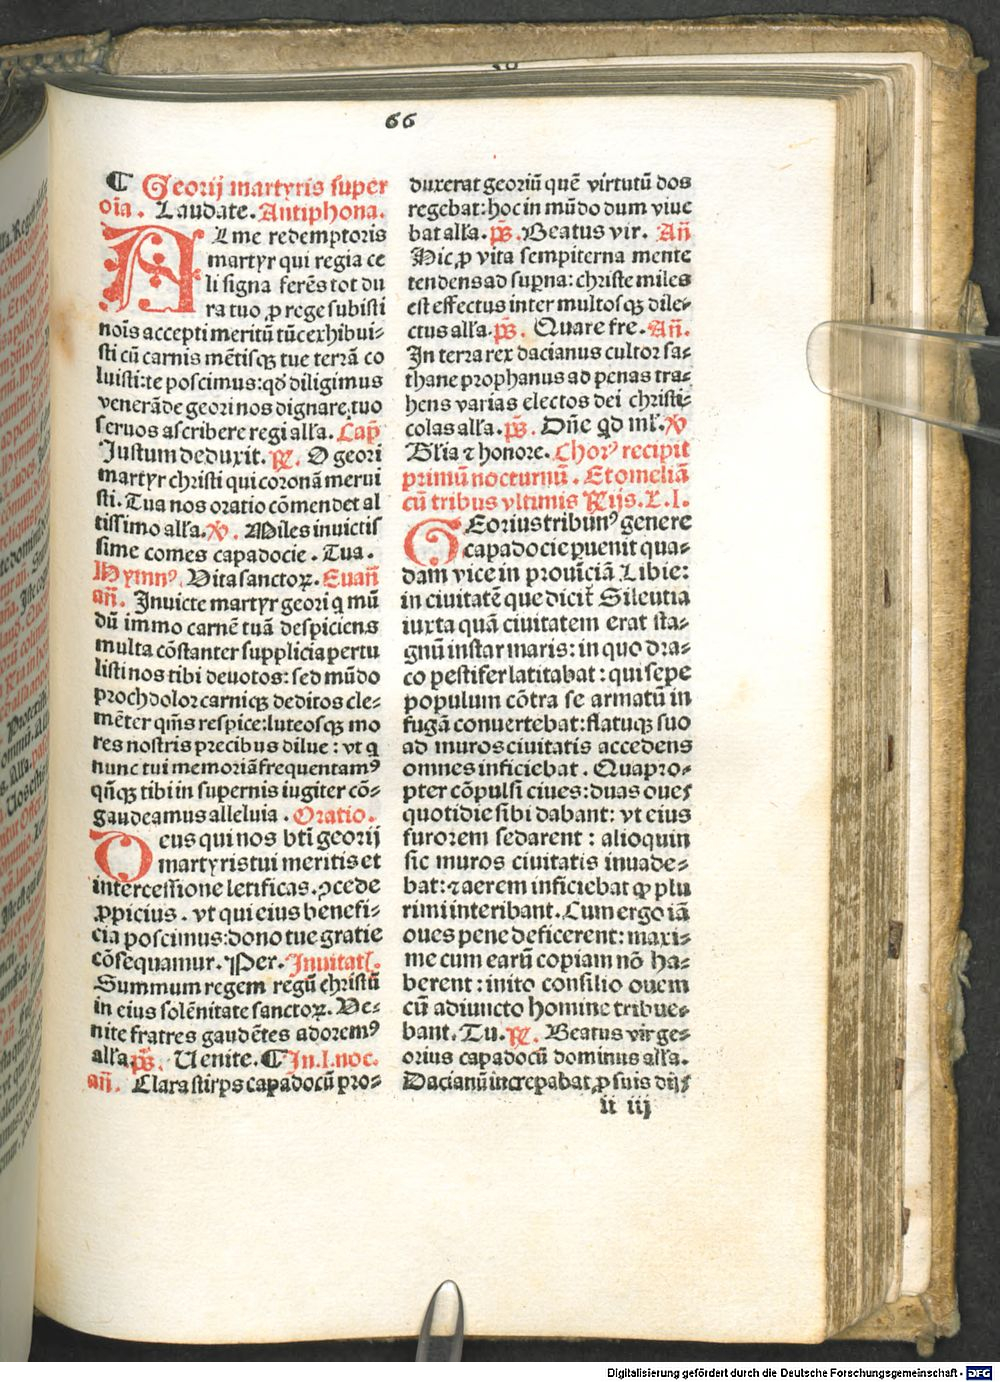 66
¶ Georij martyris super
oīa. Laudate. Antiphona.
Alme redemptoris
martyr qui regia ce
li signa ferēs tot du
ra tuo ꝓ rege subisti
nois accepti meritū tūc exhibui⸗
sti cū carnis mētisqꝫ tue terrā co
luisti: te poscimus: qd̄ diligimus
venerāde geori nos dignare, tuo
seruos ascribere regi alľa. Cap̄
Justum deduxit. ꝶ. O geori
martyr christi qui coronā merui
sti. Tua nos oratio cōmendet al
tissimo alľa. ℣. Miles inuictis
sime comes capadocie. Tua.
Hymnꝰ. Vita sanctoꝝ. Euan̄
an̄. Inuicte martyr geori q mū
dū immo carnē tuā despiciens
multa cōstanter supplicia pertu
listi nos tibi deuotos: sed mūdo
proch dolor carniqꝫ deditos cle⸗
mēter qm̄s respice: luteosqꝫ mo
res nostris precibus dilue: vt q
nunc tui memoriā frequentamꝰ
qn̄qꝫ tibi in supernis iugiter cō⸗
gaudeamus alleluia. Oratio.
Deus qui nos bt̄i georij
martyris tui meritis et
intercessione letificas. ꝯcede
ꝓpicius. vt qui eius benefi⸗
cia poscimus: dono tue gratie
cōsequamur. Per. Inuitatľ.
Summum regem regū christū
in eius solēnitate sanctoꝝ. Ve⸗
nite fratres gaudētes adoremꝰ
alľa. p̄s. Uenite. ¶ In. I. noc.
an̄. Clara stirps capadocū pro⸗
duxerat georiū quē virtutū dos
regebat: hoc in mūdo dum viue
bat alľa. p̄s. Beatus vir. An̄
Hic ꝓ vita sempiterna mente
tendens ad supna: christe miles
est effectus inter multosqꝫ dile⸗
ctus alľa. p̄s. Quare fre. An̄.
In terra rex dacianus cultor sa⸗
thane prophanus ad penas tra⸗
hens varias electos dei christi⸗
colas alľa. p̄s. Dn̄e qd ml̄. ℣
Gľia ⁊ honore. Chorꝰ recipit
primū nocturnū. Et omeliā
cū tribus vltimis ꝶijs. L. I.
GEorius tribunꝰ genere
capadocie ꝑuenit qua⸗
dam vice in prouīciā Libie:
in ciuitatē que dicit̄ Sileutia
iuxta quā ciuitatem erat sta⸗
gnū instar maris: in quo dra⸗
co pestifer latitabat: qui sepe
populum cōtra se armatū in
fugā conuertebat: flatuqꝫ suo
ad muros ciuitatis accedens
omnes inficiebat. Quapro⸗
pter cōpulsi ciues: duas oues
quotidie sibi dabant: vt eius
furorem sedarent: alioquin
sic muros ciuitatis inuade⸗
bat: ⁊ aerem inficiebat ꝙ plu
rimi interibant. Cum ergo iā
oues pene deficerent: maxi⸗
me cum earū copiam nō ha⸗
berent: inito consilio ouem
cū adiuncto homine tribue⸗
bant. Tu. ꝶ. Beatus vir ge⸗
orius capadocū dominus alľa.
Dacianū increpabat ꝓ suis dijs
ii iij
Digitalisierung gefördert durch die Deutsche Forschungsgemeinschaft - DFG